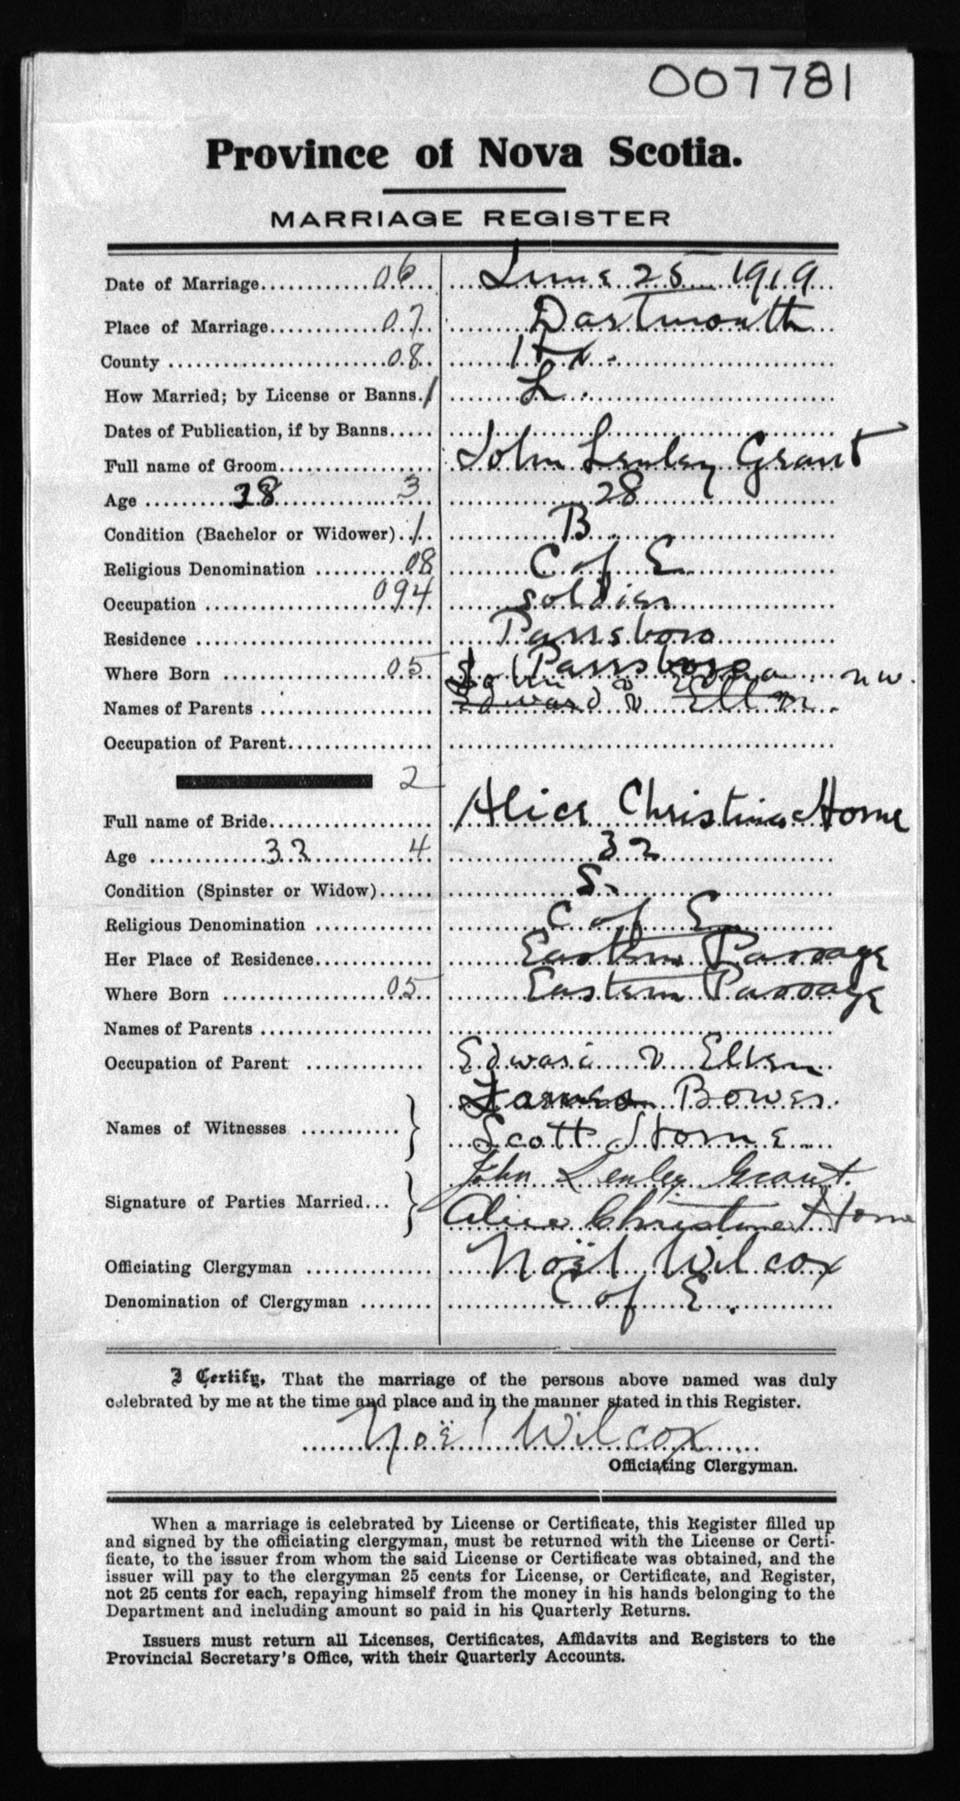 007781
Province of Nova Scotia.
MARRIAGE REGISTER
Date of Marriage............06. June 25 1919
Place of Marriage............07. Dartmouth
County ........................08. Hx.
How Married; by License or Banns./ L.
Dates of Publication, if by Banns.....
Full name of Groom................ John Lenley Grant
Age .........28............3 28
Condition (Bachelor or Widower)..1. B.
Religious Denomination .........08 C of E
Occupation ..................094 soldier
Residence ......................... Parrsboro
Where Born ..................05 Parrsboro
John Edna n w.
Names of Parents .................. Edward & Ellen.
Occupation of Parent...............
2
Full name of Bride................. Alice Christina Horne
Age ............32..........4. 32
Condition (Spinster or Widow)...... S.
Religious Denomination ............ C of E
Her Place of Residence............. Eastern Passage
Where Born ..................05.. Eastern Passage
Names of Parents ..................
Occupation of Parent ............. Edward & Ellen
Names of Witnesses ........... James Bower.
Scott Horne
Signature of Parties Married... John Lenley Grant.
Alice Christine Horne
Officiating Clergyman ............. Noël Wilcox
Denomination of Clergyman ........ C of E.
I Certify, That the marriage of the persons above named was duly
celebrated by me at the time and place and in the manner stated in this Register.
Noël Wilcox
Officiating Clergyman.
When a marriage is celebrated by License or Certificate, this Register filled up
and signed by the officiating clergyman, must be returned with the License or Certi-
ficate, to the issuer from whom the said License or Certificate was obtained, and the
issuer will pay to the clergyman 25 cents for License, or Certificate, and Register,
not 25 cents for each, repaying himself from the money in his hands belonging to the
Department and including amount so paid in his Quarterly Returns.
Issuers must return all Licenses, Certificates, Affidavits and Registers to the
Provincial Secretary's Office, with their Quarterly Accounts.